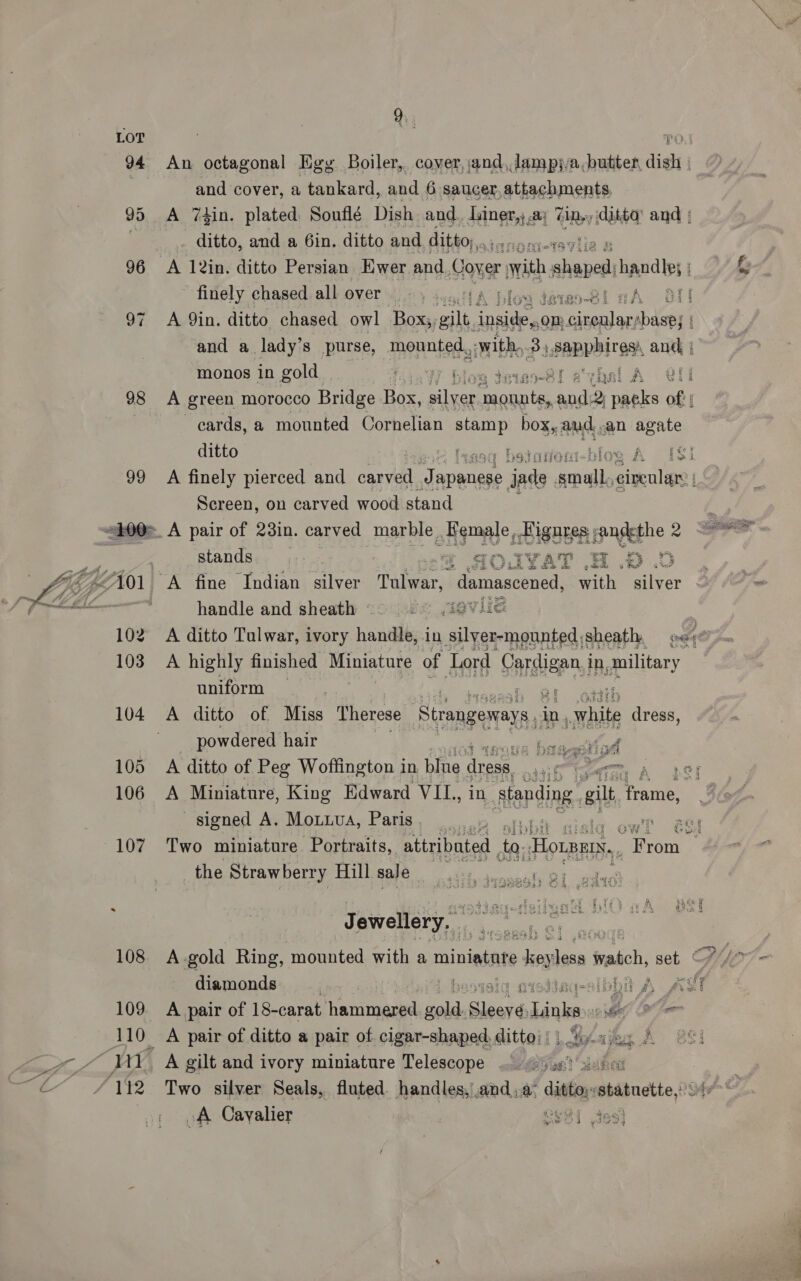 9
LOT
94 An octagonal Egg Boiler, cover, and lamp; a butter dish
and cover, a tankard, and 6 saucer attachments
95 A 7½in. plated Souflé Dish and Liner; a 7in. ditto and
ditto, and a 6in. ditto and ditto
96 A 12in. ditto Persian Ewer and Cover with shaped handle;
finely chased all over
97 A 9in. ditto chased owl Box, gilt inside, on circular base;
and a lady's purse, mounted with 3 sapphires, and
monos in gold
98 A green morocco Bridge Box, silver mounts, and 2 packs of
cards, a mounted Cornelian stamp box, and an agate
ditto
99 A finely pierced and carved Japanese jade small circular
Screen, on carved wood stand
100 A pair of 23in. carved marble Female Figures and the 2
stands
101 A fine Indian silver Tulwar, damascened, with silver
handle and sheath
102 A ditto Tulwar, ivory handle, in silver-mounted sheath
103 A highly finished Miniature of Lord Cardigan in military
uniform
104 A ditto of Miss Therese Strangeways, in white dress,
powdered hair
105 A ditto of Peg Woffington in blue dress
106 A Miniature, King Edward VII., in standing gilt frame,
signed A. Mollua, Paris
107 Two miniature Portraits, attributed to Holbein. From
the Strawberry Hill sale
Jewellery.
108 A gold Ring, mounted with a miniature keyless watch, set
diamonds
109 A pair of 18-carat hammered gold Sleeve Links
110 A pair of ditto a pair of cigar-shaped ditto
111 A gilt and ivory miniature Telescope
112 Two silver Seals, fluted handles, and a ditto statuette,
A Cavalier